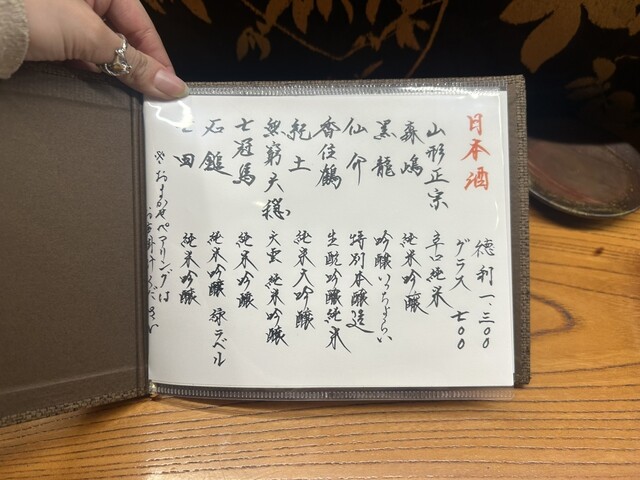 日本酒
徳利 一、三〇〇
グラス 七〇〇
山形正宗 辛口純米
森嶋 純米吟醸
黒龍 吟醸いっちょらい
仙介 特別本醸造
香住鶴 生酛吟醸純米
紀土 純米大吟醸
無窮天穏 天雲 純米吟醸
七冠馬 純米吟醸
石鎚 純米吟醸 緑ラベル
田 純米吟醸
※おまかせペアリングは